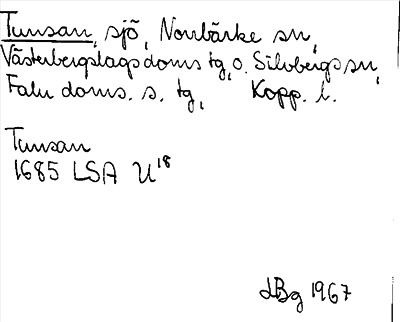 Tunsan, sjö, Norrbärke sn,
Västerbergslags doms tg, o. Silvbergs sn,
Falu doms. s. tg, Kopp. l.
Tunsan
1685 LSA U18
dBg 1967